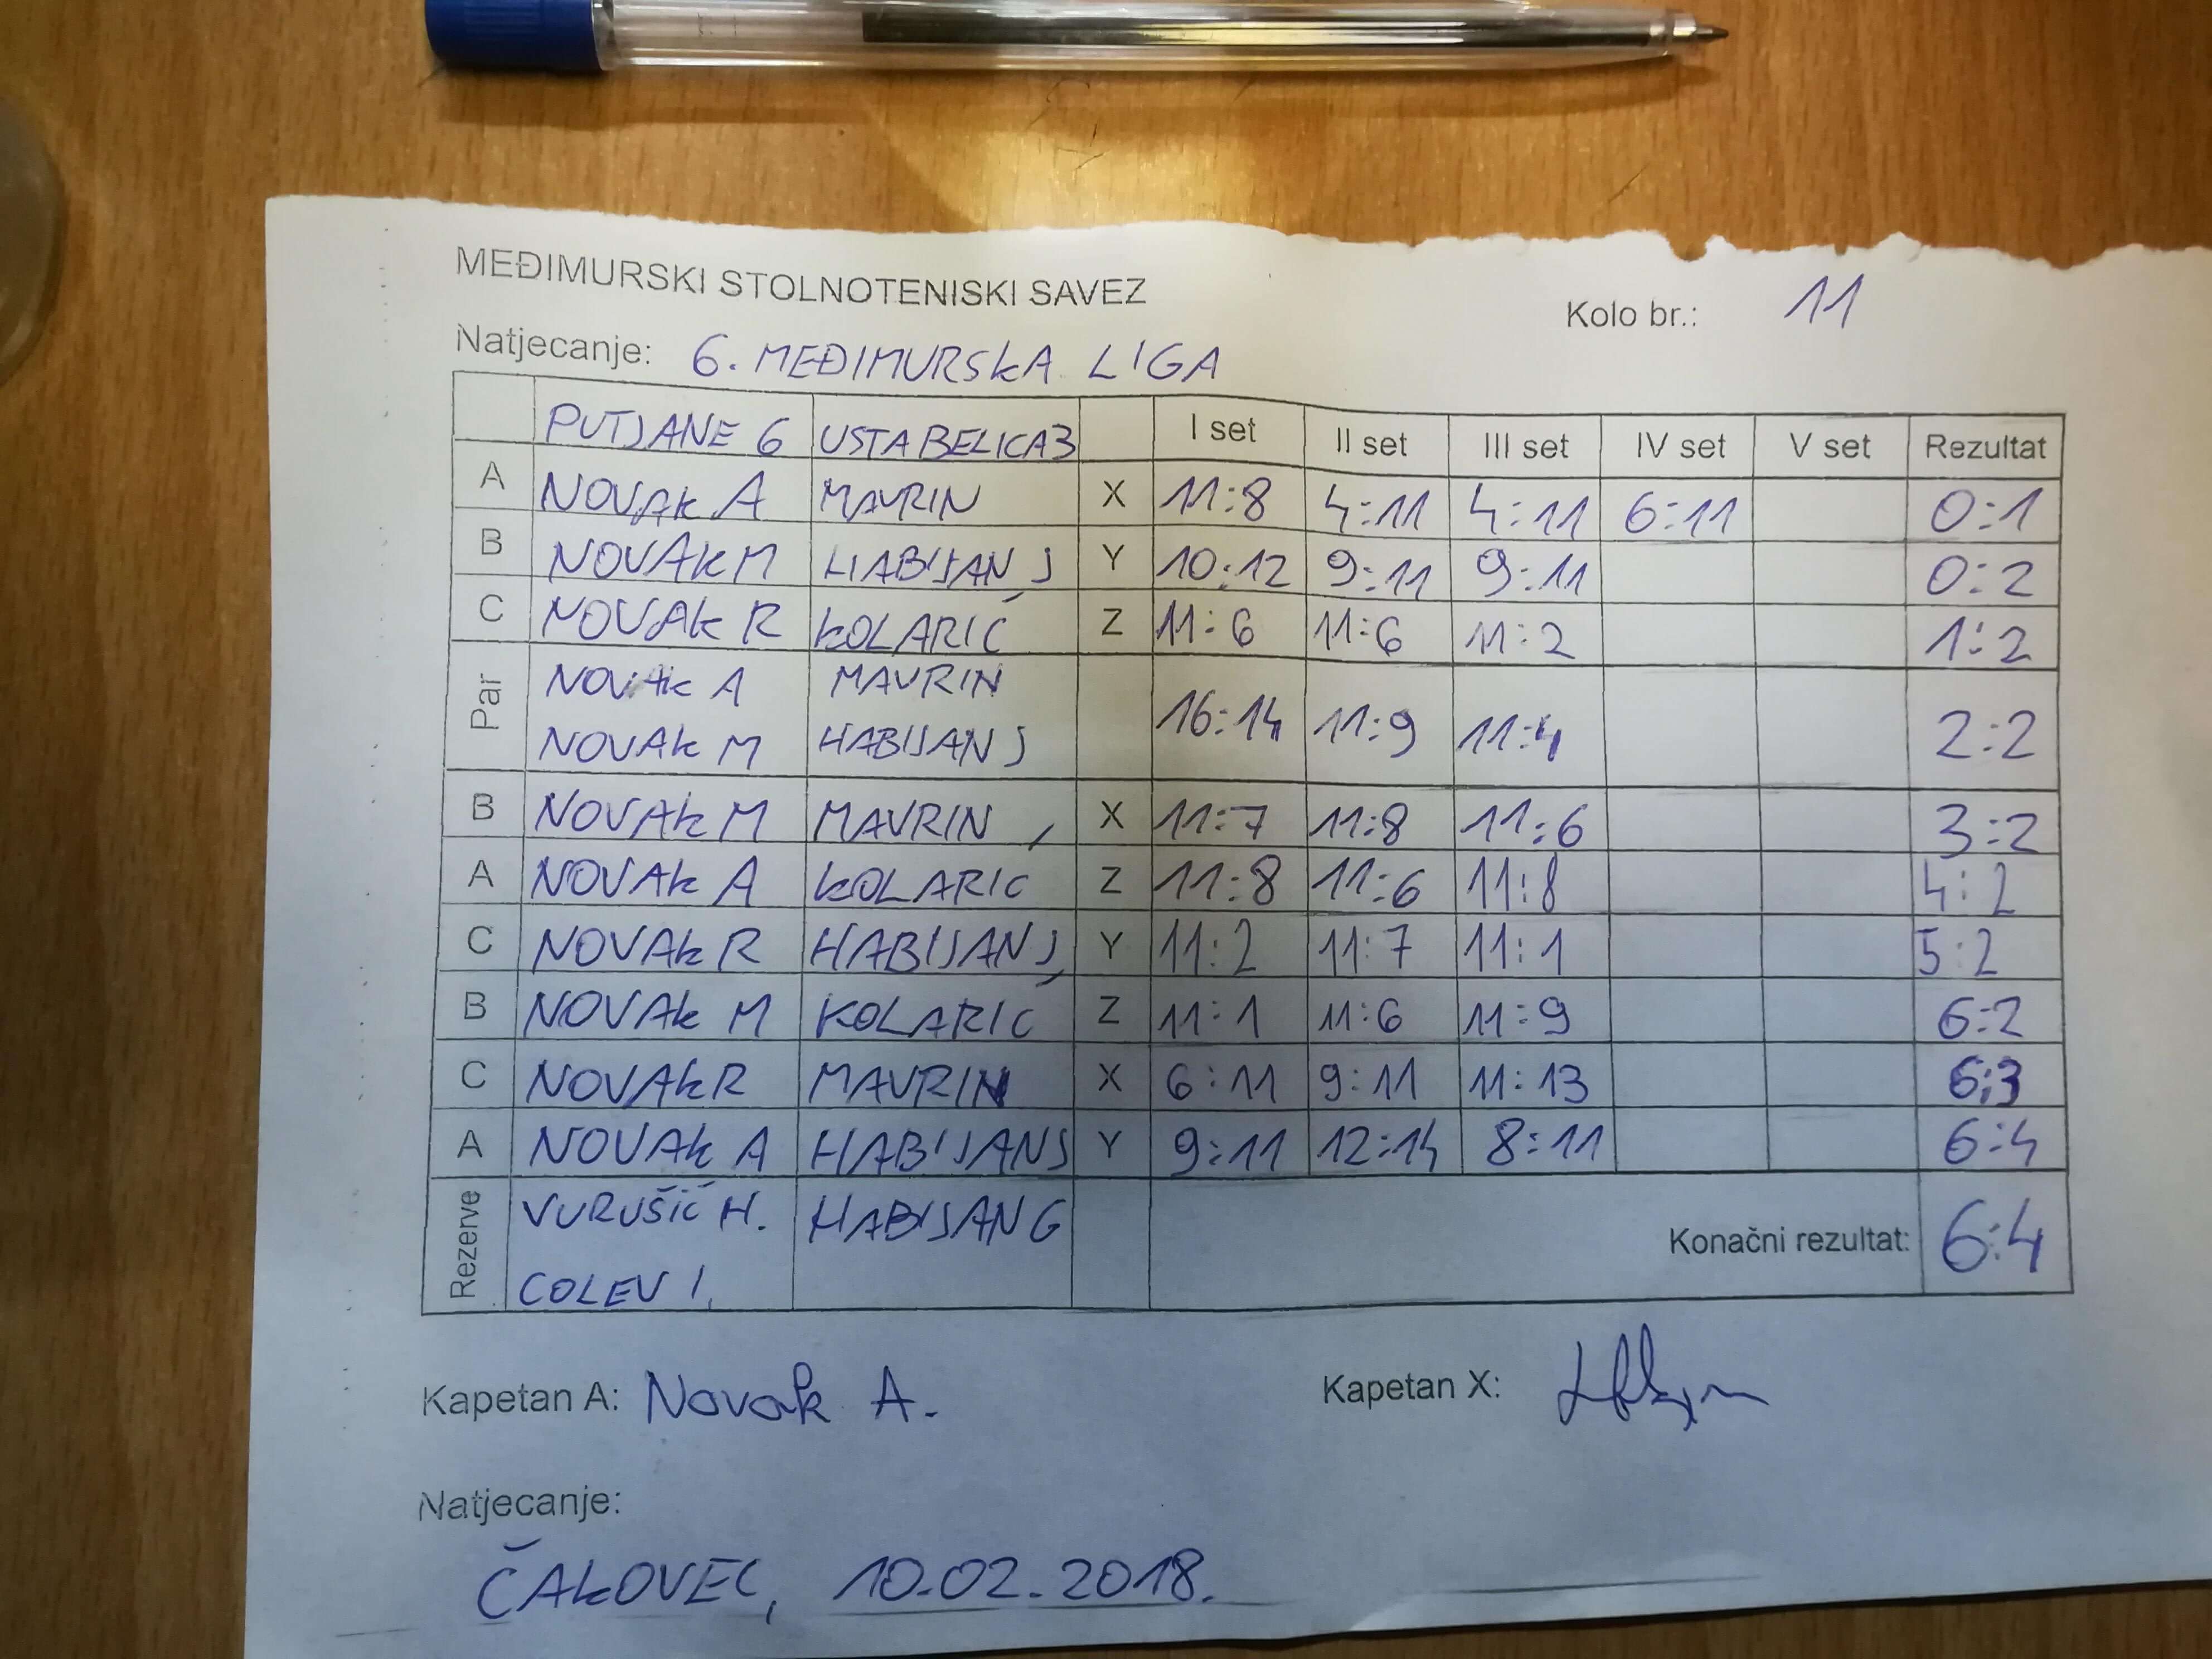 MEĐIMURSKI STOLNOTENISKI SAVEZ
Kolo br.: 11
Natjecanje: 6. MEĐIMURSKA LIGA
PUTJANE 6 USTA BELICA3 I set II set III set IV set V set Rezultat
A NOVAK A MAVRIN X 11:8 4:11 4:11 6:11 0:1
B NOVAK M HABIJAN J Y 10:12 9:11 9:11 0:2
C NOVAK R KOLARIĆ Z 11:6 11:6 11:2 1:2
Par NOVAK A MAVRIN 16:14 11:9 11:4 2:2
NOVAK M HABIJAN J
B NOVAK M MAVRIN X 11:7 11:8 11:6 3:2
A NOVAK A KOLARIĆ Z 11:8 11:6 11:8 4:2
C NOVAK R HABIJAN J Y 11:2 11:7 11:1 5:2
B NOVAK M KOLARIĆ Z 11:1 11:6 11:9 6:2
C NOVAK R MAVRIN X 6:11 9:11 11:13 6:3
A NOVAK A HABIJAN J Y 9:11 12:14 8:11 6:4
Rezerve VURUŠIĆ H. HABIJAN G Konačni rezultat: 6:4
COLEV I.
Kapetan A: Novak A. Kapetan X:
Natjecanje:
ČAKOVEC, 10.02.2018.